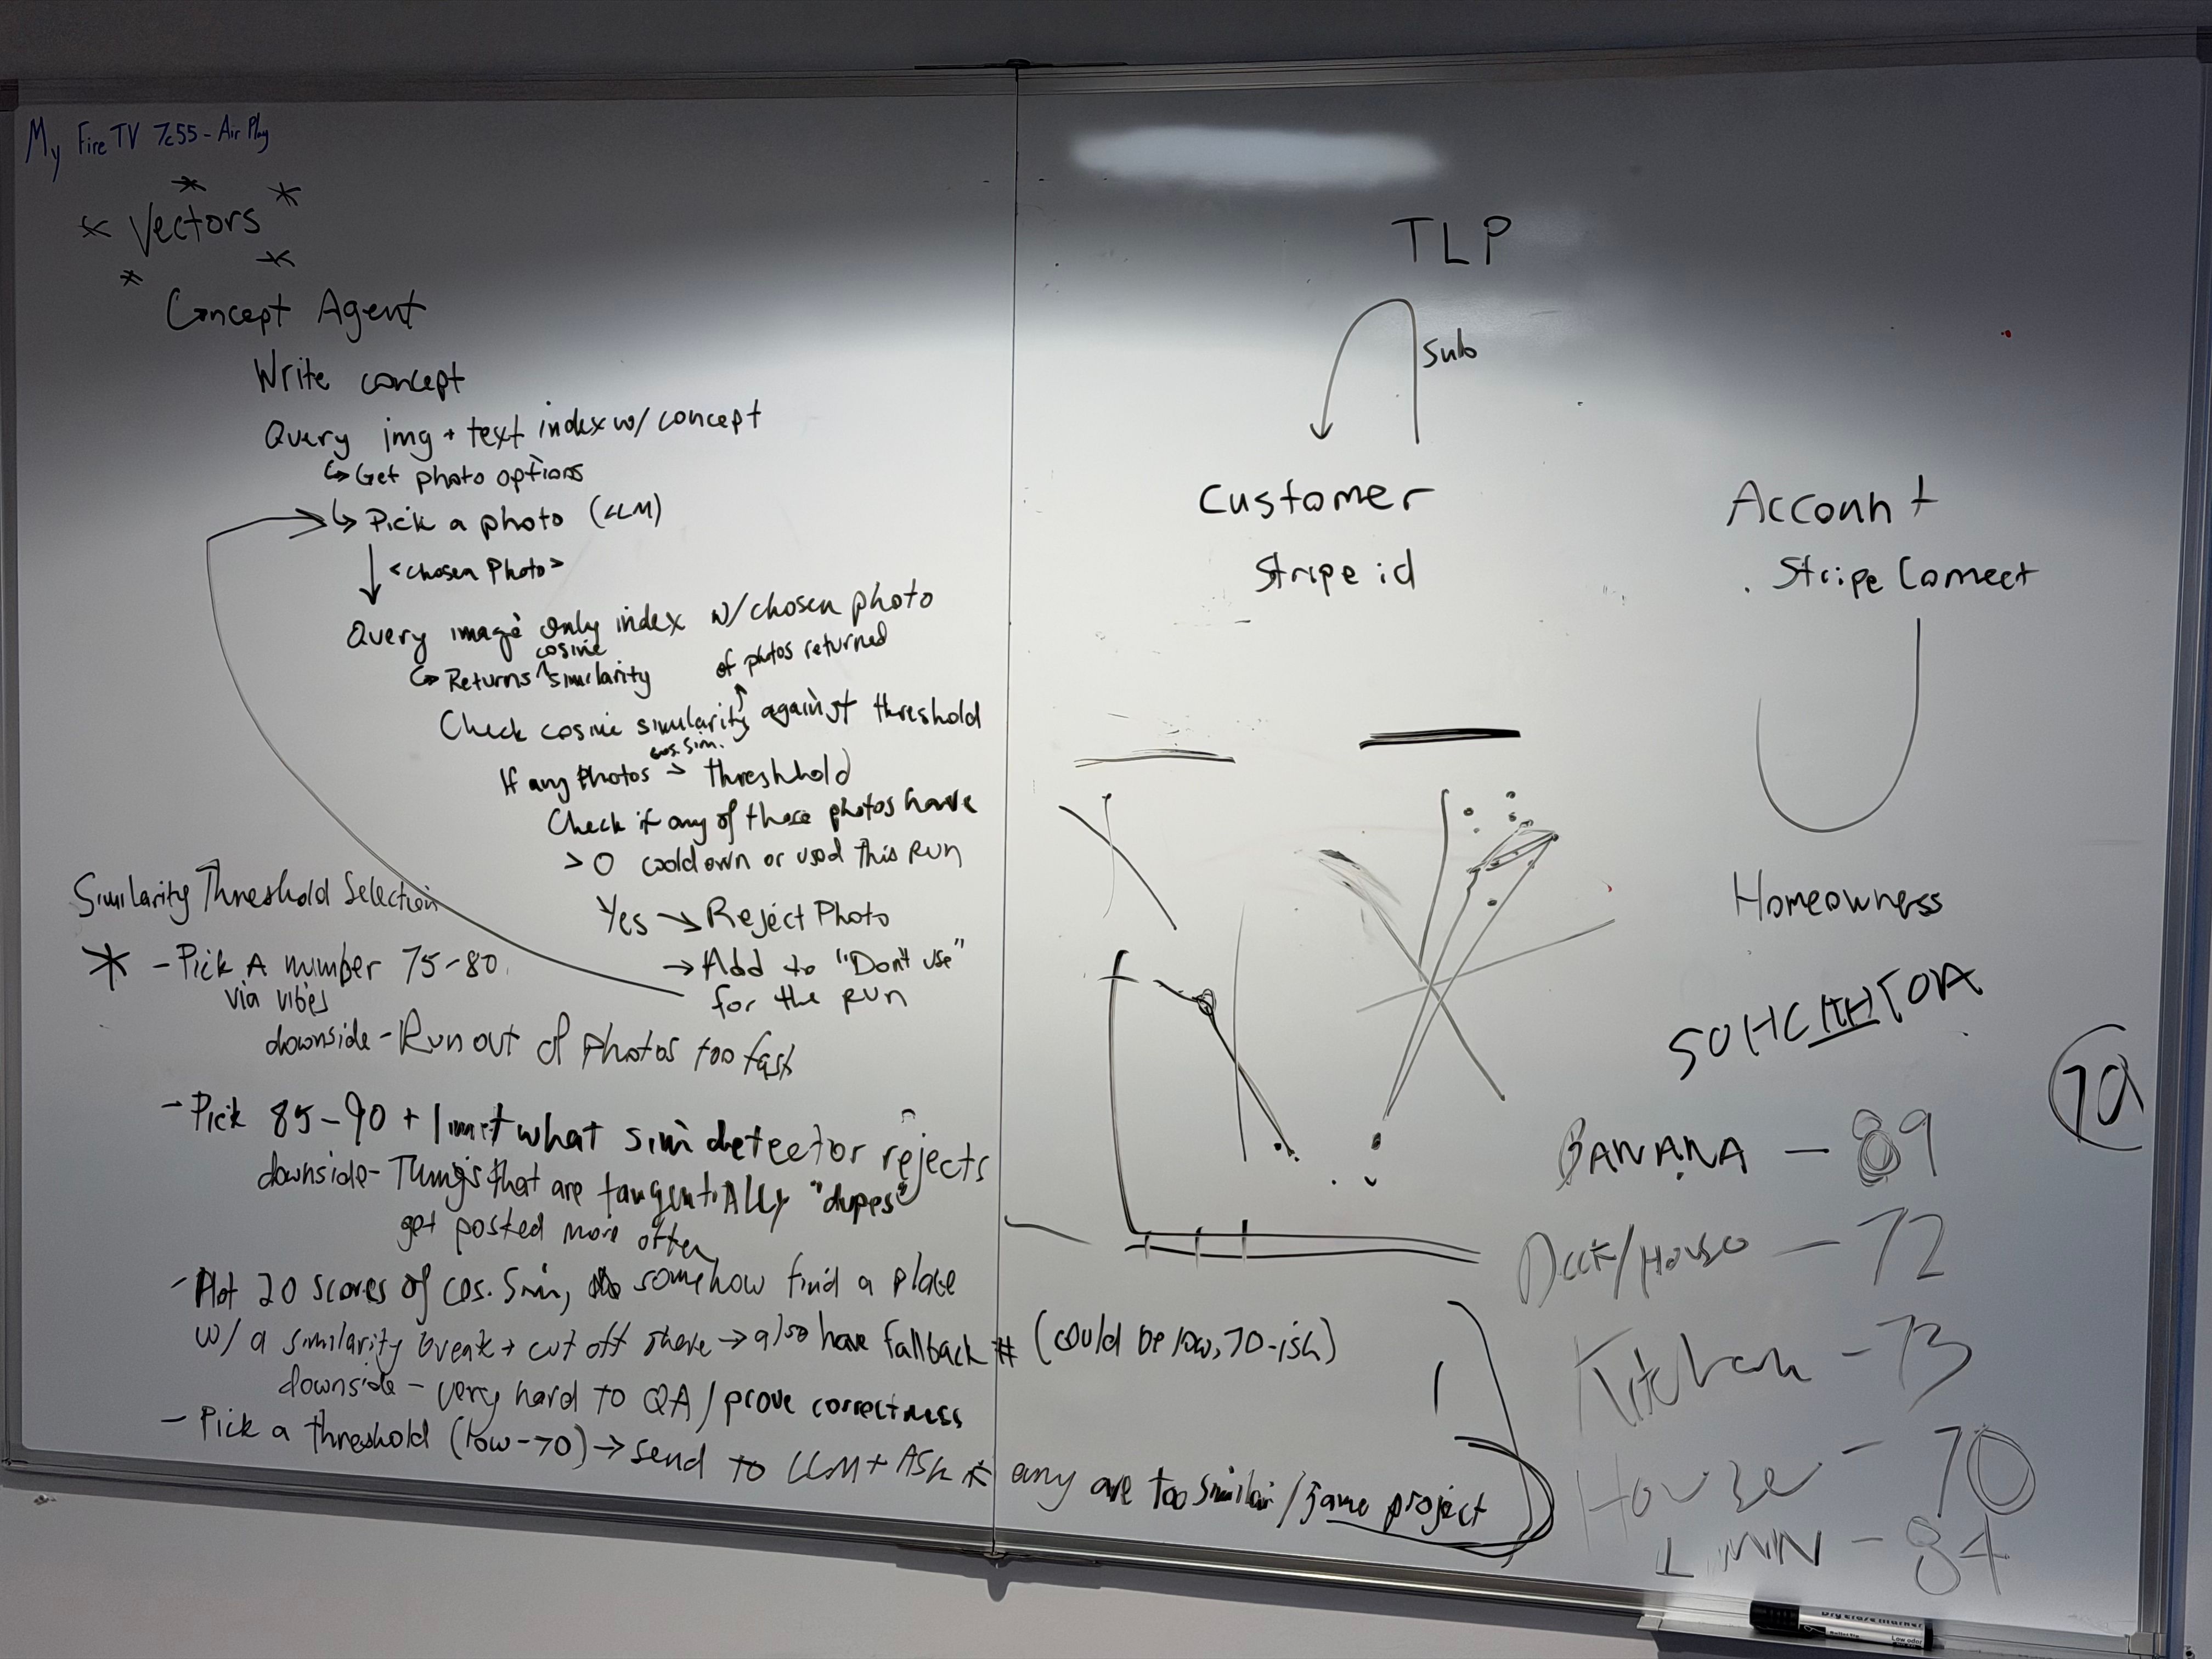 My Fire TV 7c55 - Air Play
* Vectors *
Concept Agent
Write concept
Query img + text index w/ concept
↳ Get photo options
↳ Pick a photo (LLM)
<chosen Photo>
Query image only index w/ chosen photo
↳ Returns cosine similarity of photos returned
Check cosine similarity against threshold
If any photos cos. sim. > threshhold
Check if any of those photos have
> 0 cooldown or used this run
Yes → Reject Photo
→ Add to "Don't use"
for the run
Similarity Threshold Selection
* - Pick A number 75-80
via vibes
downside - Run out of photos too fast
- Pick 85-90 + limit what sim detector rejects
downside - Things that are tangentially "dupes"
get posted more often
- Plot 20 scores of cos. sim, somehow find a place
w/ a similarity break + cut off there → also have fallback # (could be low, 70-ish)
downside - very hard to QA / prove correctness
- Pick a threshold (low - 70) → send to LLM + ASK if any are too similar / same project
TLP
Sub
Customer
Stripe id
Account
Stripe Connect
Homeowners
70
BANANA - 89
Deck/House - 72
Kitchen - 73
House - 70
1 MIN - 84
Dry Erase Marker
Bullet Tip
Low odor